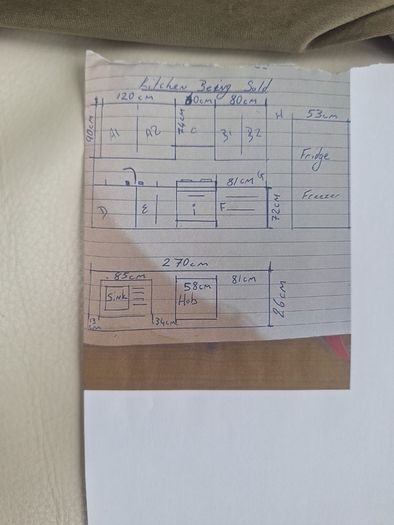 Kitchen Being Sold
120cm 60cm 80cm H 53cm
90cm A1 A2 74cm C B1 B2
Fridge
Freezer
81cm G
D E i F 72cm
270cm
85cm 81cm
58cm
Sink Hob
13cm 34cm